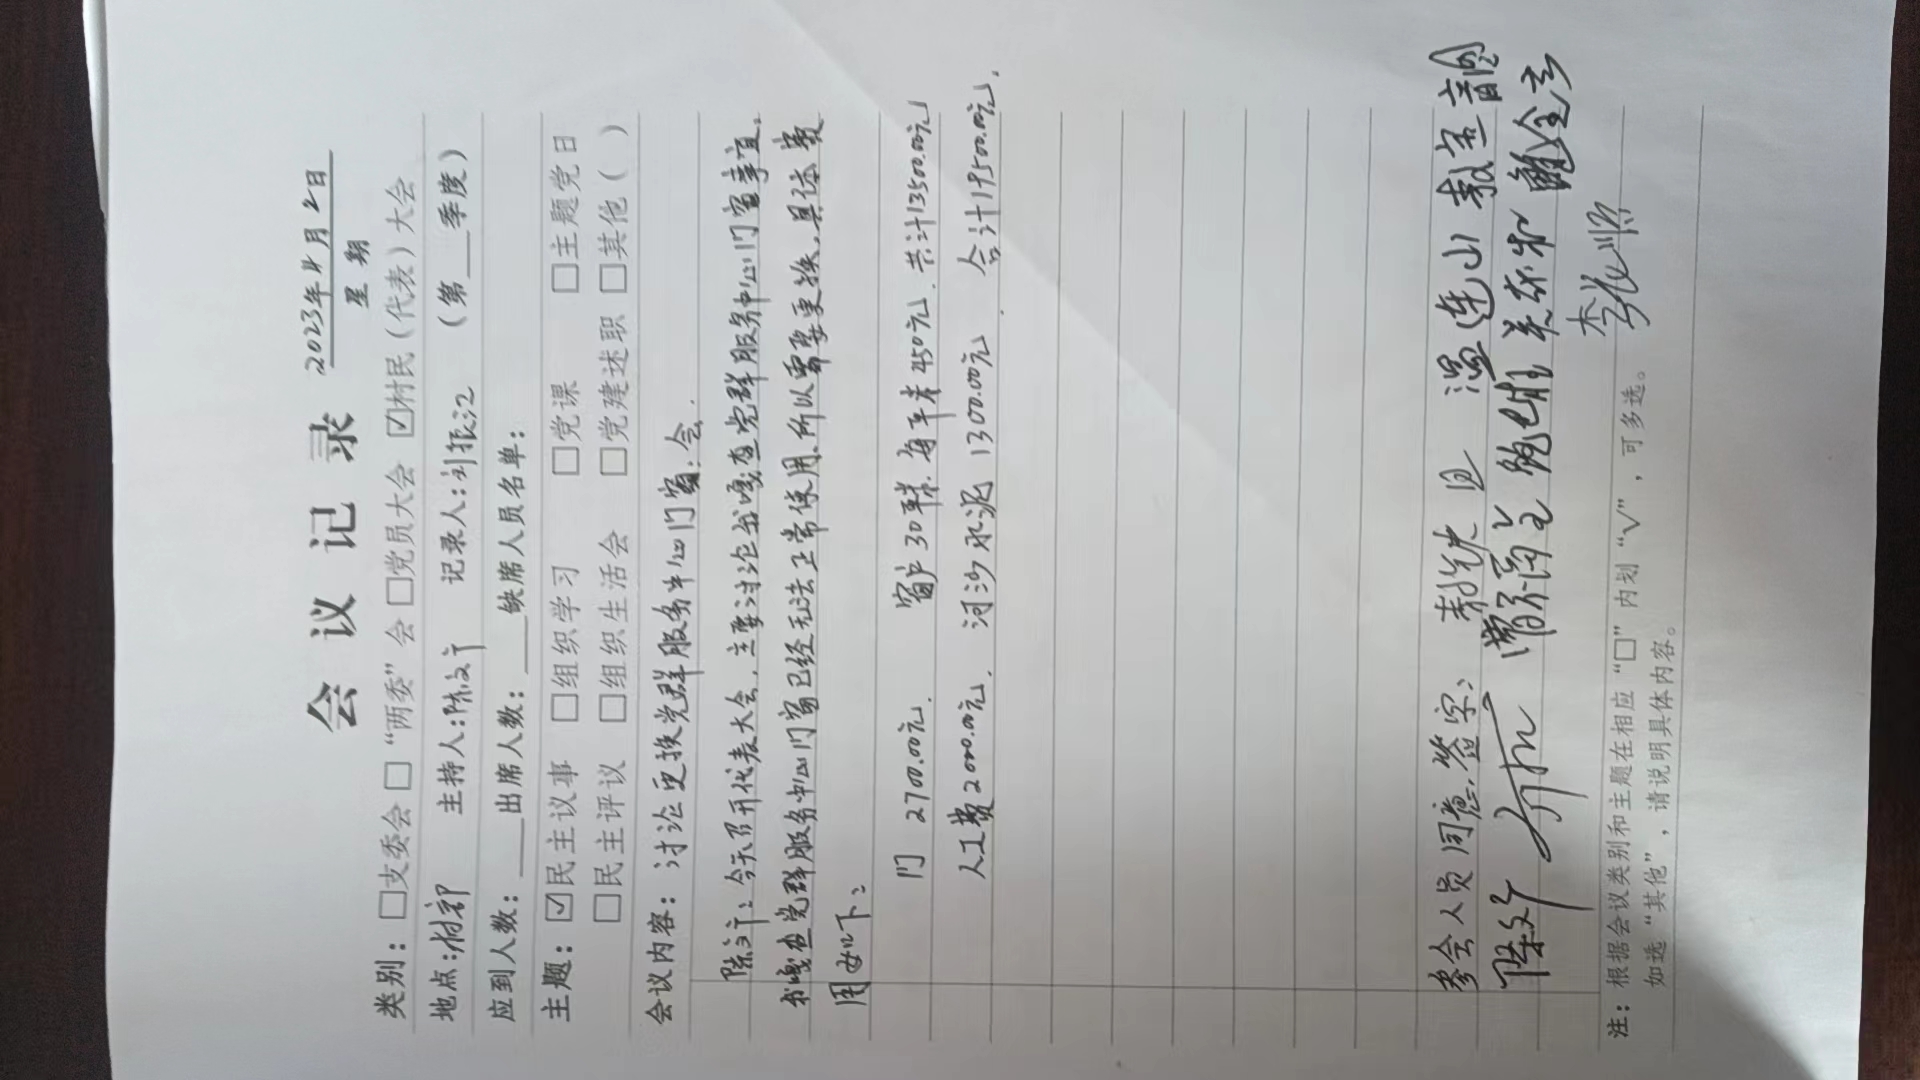 会议记录
2023年4月2日
星期
类别：□支委会 □“两委”会 □党员大会 ☑村民（代表）大会
地点：村部 主持人：陈文 记录人：刘振江 （第__季度）
应到人数：___出席人数：___缺席人员名单：
主题：☑民主议事 □组织学习 □党课 □主题党日
□民主评议 □组织生活会 □党建述职 □其他（ ）
会议内容：讨论更换党群服务中心门窗会.
陈文：今天召开代表大会，主要讨论 嘎查党群服务中心门窗事宜。
嘎查党群服务中心门窗已经无法正常使用，所以需要更换，具体费
用如下：
门 2700.00元. 窗户30平米 每平米450元. 共计13500.00元
人工费2000.00元. 河沙水泥1300.00元. 合计19500.00元.
参会人员同意签字： 连山 宝
注：根据会议类别和主题在相应“□”内划“√”，可多选。
如选“其他”，请说明具体内容。